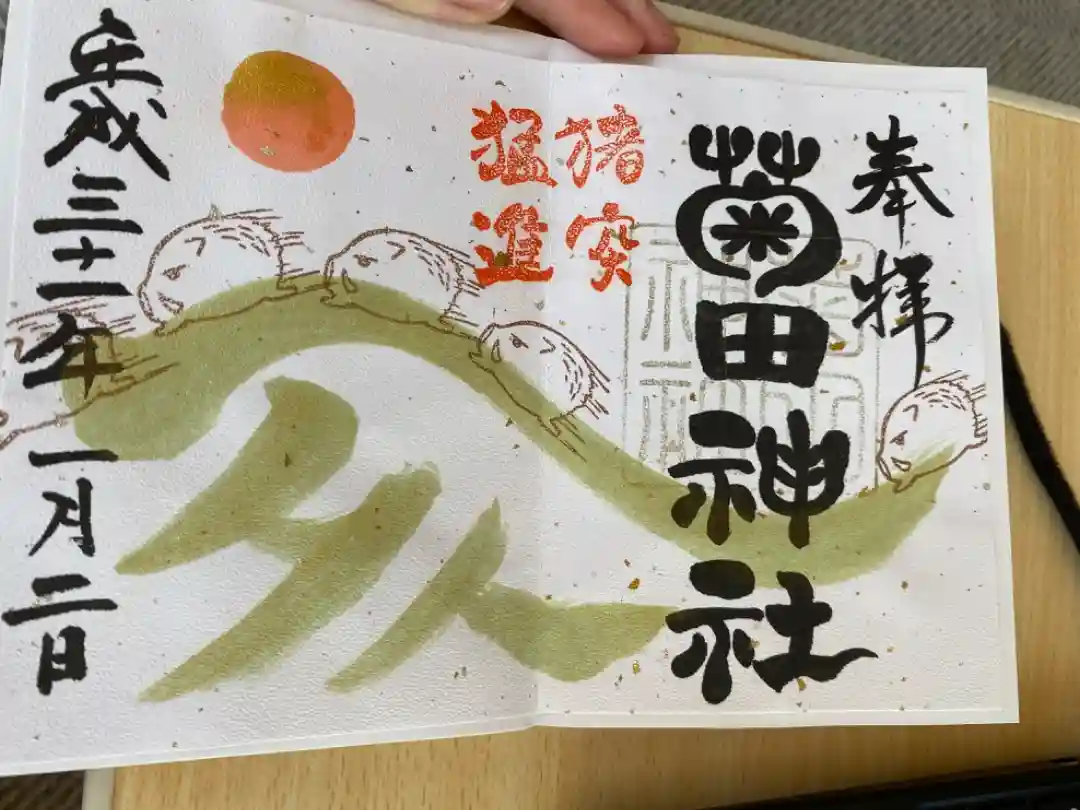 奉拝
菊田神社
猪突
猛進
平成三十一年一月二日
亥